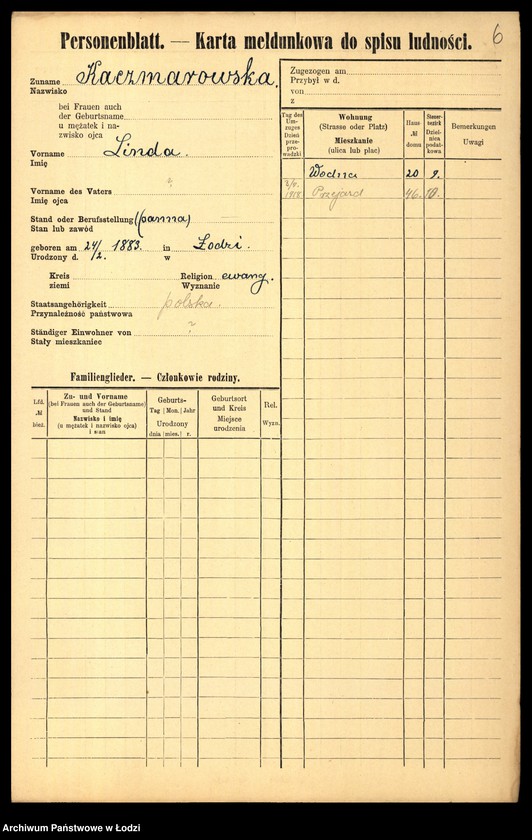 6
Personenblatt. — Karta meldunkowa do spisu ludności.
Zuname Kaczmarowska.
Nazwisko
bei Frauen auch
der Geburtsname
u mężatek i na-
zwisko ojca
Vorname Linda.
Imię
Vorname des Vaters ?
Imię ojca
Stand oder Berufsstellung (panna)
Stan lub zawód
geboren am 24/2. 1883. in Łodzi.
Urodzony d. w
Kreis Religion ewang.
ziemi Wyznanie
Staatsangehörigkeit polska.
Przynależność państwowa
Ständiger Einwohner von ?
Stały mieszkaniec
Familienglieder. — Członkowie rodziny.
Lfd. № bież.
Zu- und Vorname
(bei Frauen auch der Geburtsname)
und Stand
Nazwisko i imię
(u mężatek i nazwisko ojca)
i stan
Geburts-
Tag Mon. Jahr
Urodzony
dnia mies. r.
Geburtsort
und Kreis
Miejsce
urodzenia
Rel.
Wyzn.
Zugezogen am
Przybył w d.
von
z
Tag des
Um-
zuges
Dzień
prze-
pro-
wadzki
Wohnung
(Strasse oder Platz)
Mieszkanie
(ulica lub plac)
Haus
№
domu
Steuer-
bezirk
Dziel-
nica
podat-
kowa
Bemerkungen
Uwagi
Wodna 20 9.
1918. Przejazd 46. 10.
Archiwum Państwowe w Łodzi